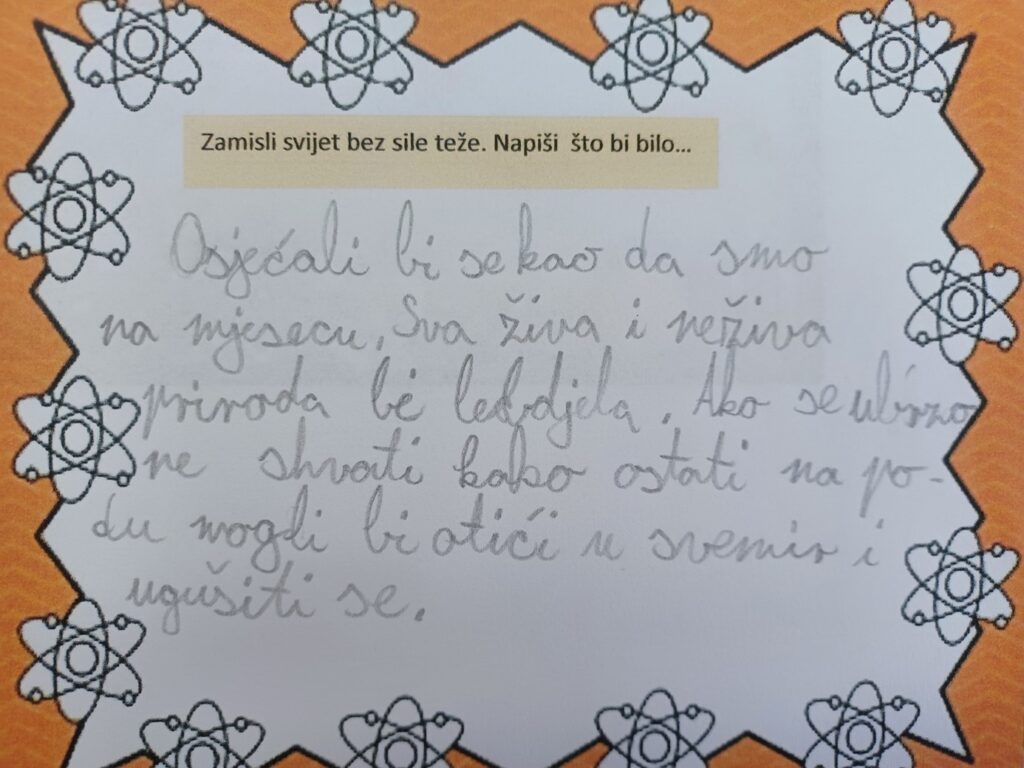 Zamisli svijet bez sile teže. Napiši što bi bilo...
Osjećali bi se kao da smo
na mjesecu. Sva živa i neživa
priroda bi lebdjela. Ako se ubrzo
ne shvati kako ostati na po-
du mogli bi otići u svemir i
ugušiti se.